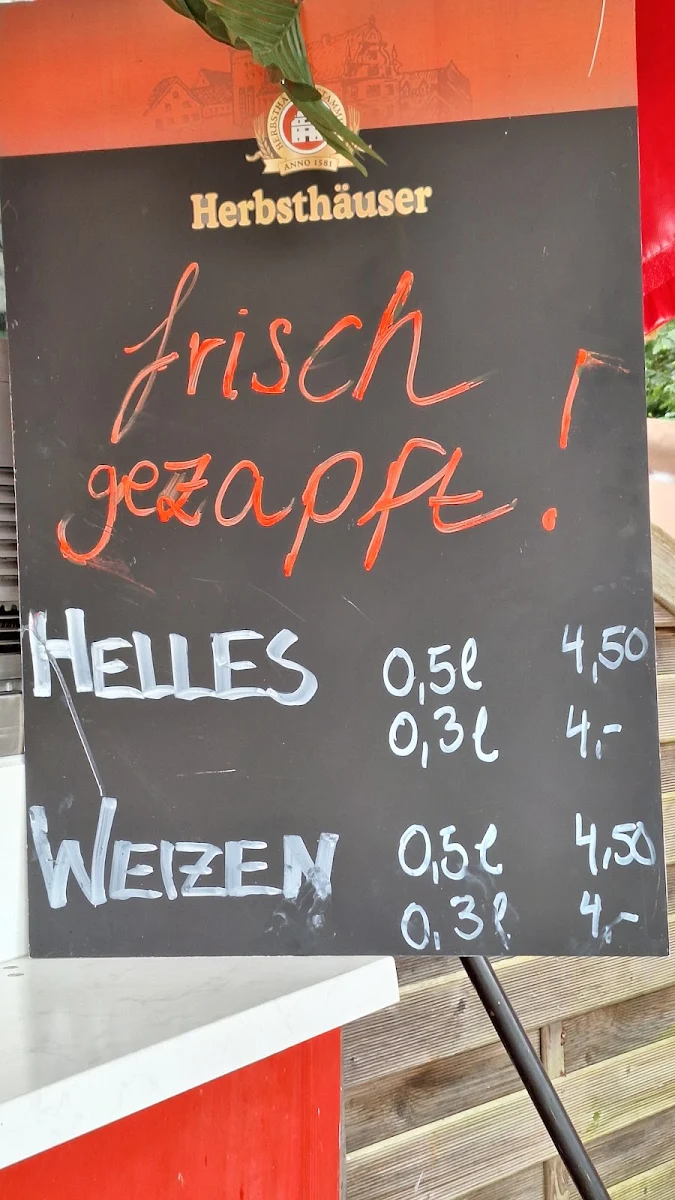 ANNO 1581
Herbsthäuser
frisch
gezapft!
HELLES 0,5l 4,50
0,3l 4,-
WEIZEN 0,5l 4,50
0,3l 4,-